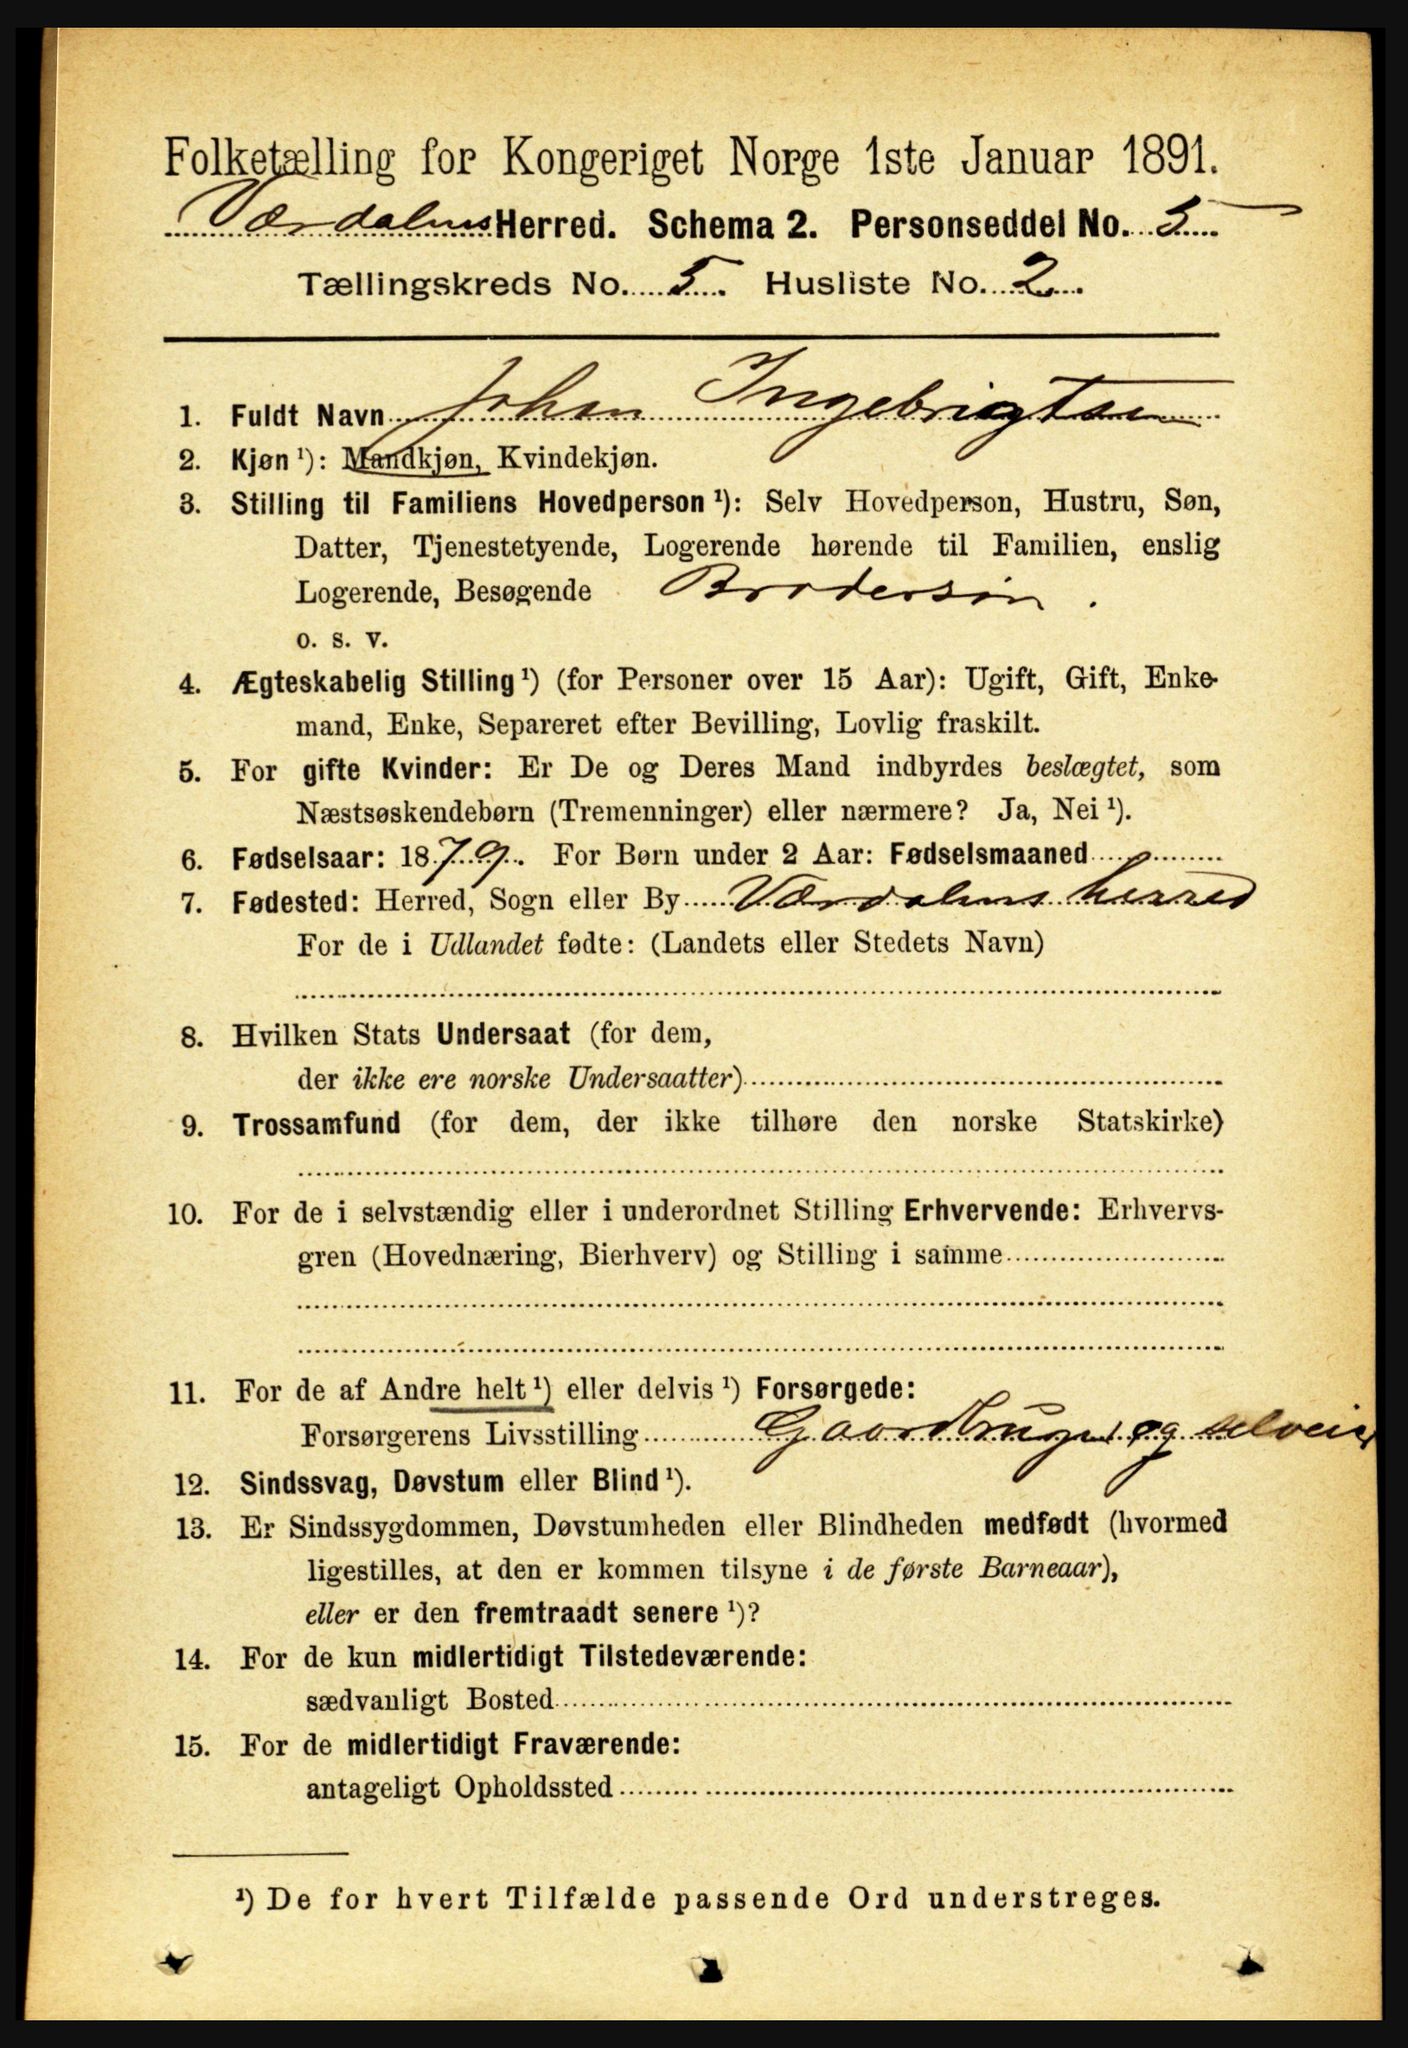 Folketælling for Kongeriget Norge 1ste Januar 1891.
Værdalens Herred. Schema 2. Personseddel No. 5
Tællingskreds No. 5. Husliste No. 2.
1. Fuldt Navn Johan Ingebrigtsen
2. Kjøn ¹): Mandkjøn, Kvindekjøn.
3. Stilling til Familiens Hovedperson ¹): Selv Hovedperson, Hustru, Søn,
Datter, Tjenestetyende, Logerende hørende til Familien, enslig
Logerende, Besøgende Brodersøn.
o. s. v.
4. Ægteskabelig Stilling ¹) (for Personer over 15 Aar): Ugift, Gift, Enke-
mand, Enke, Separeret efter Bevilling, Lovlig fraskilt.
5. For gifte Kvinder: Er De og Deres Mand indbyrdes beslægtet, som
Næstsøskendebørn (Tremenninger) eller nærmere? Ja, Nei ¹).
6. Fødselsaar: 1879. For Børn under 2 Aar: Fødselsmaaned
7. Fødested: Herred, Sogn eller By Værdalens herred
For de i Udlandet fødte: (Landets eller Stedets Navn)
8. Hvilken Stats Undersaat (for dem,
der ikke ere norske Undersaatter)
9. Trossamfund (for dem, der ikke tilhøre den norske Statskirke)
10. For de i selvstændig eller i underordnet Stilling Erhvervende: Erhvervs-
gren (Hovednæring, Bierhverv) og Stilling i samme
11. For de af Andre helt ¹) eller delvis ¹) Forsørgede:
Forsørgerens Livsstilling Gaardbruger og selveier
12. Sindssvag, Døvstum eller Blind ¹).
13. Er Sindssygdommen, Døvstumheden eller Blindheden medfødt (hvormed
ligestilles, at den er kommen tilsyne i de første Barneaar),
eller er den fremtraadt senere ¹)?
14. For de kun midlertidigt Tilstedeværende:
sædvanligt Bosted
15. For de midlertidigt Fraværende:
antageligt Opholdssted
¹) De for hvert Tilfælde passende Ord understreges.